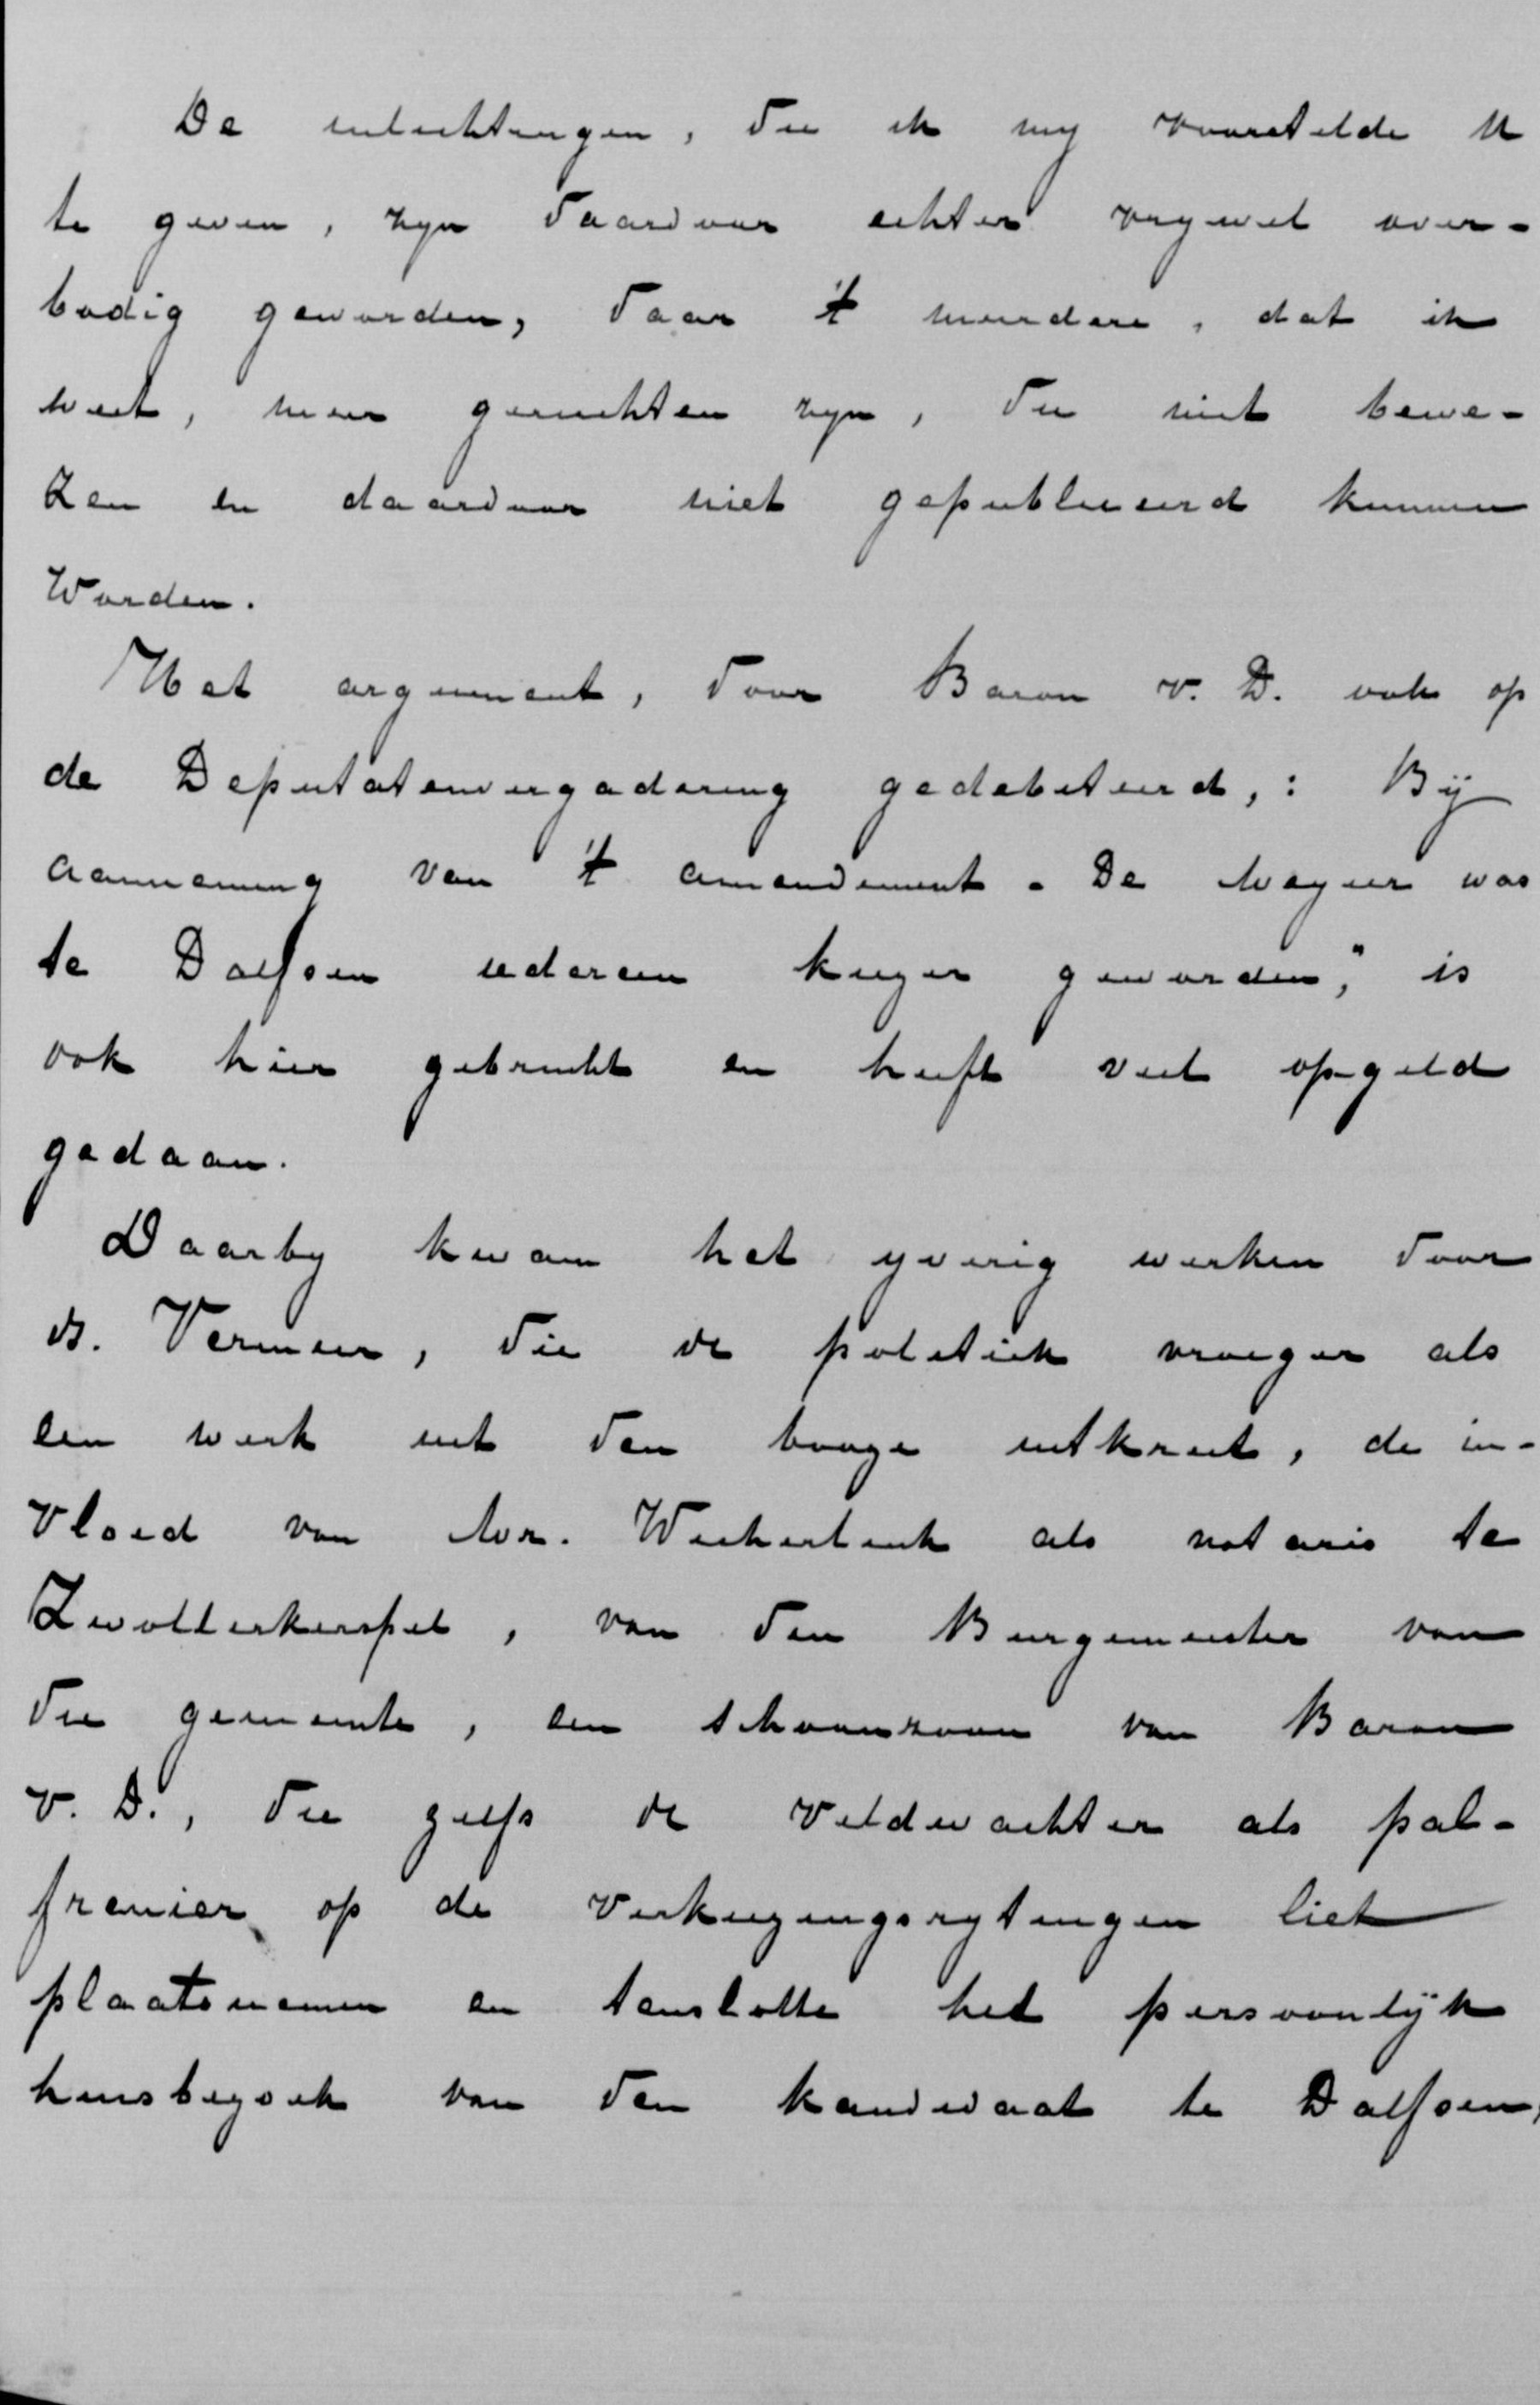 De inlichtingen, die ik mij voorstelde U
te geven, zijn daardoor echter vrijwel over-
bodig geworden, daar 't meerdere, dat ik
weet, meer geruchten zijn, die niet bewe-
zen en daardoor niet gepubliceerd kunnen
worden.
Het argument, door Baron v. D. ook op
de Deputatenvergadering gedebiteerd, : Bij
aanneming van 't amendement - De Meyier was
te Dalfsen iedereen kiezer geworden," is
ook hier gebruikt en heeft veel opgeld
gedaan.
Daarby kwam het yverig werken door
ds. Vermeer, die de politiek vroeger als
een werk uit den booze uitkreet, de in-
vloed van Mr. als notaris te
Zwollerkerspel, van den Burgemeester van
die gemeente, een schoonzoon van Baron
v. D., die zelfs de veldwachter als pal-
frenier op de verkiezingsrytuigen liet
plaatsnemen en tenslotte het persoonlijk
huisbezoek van den kandidaat te Dalfsen,